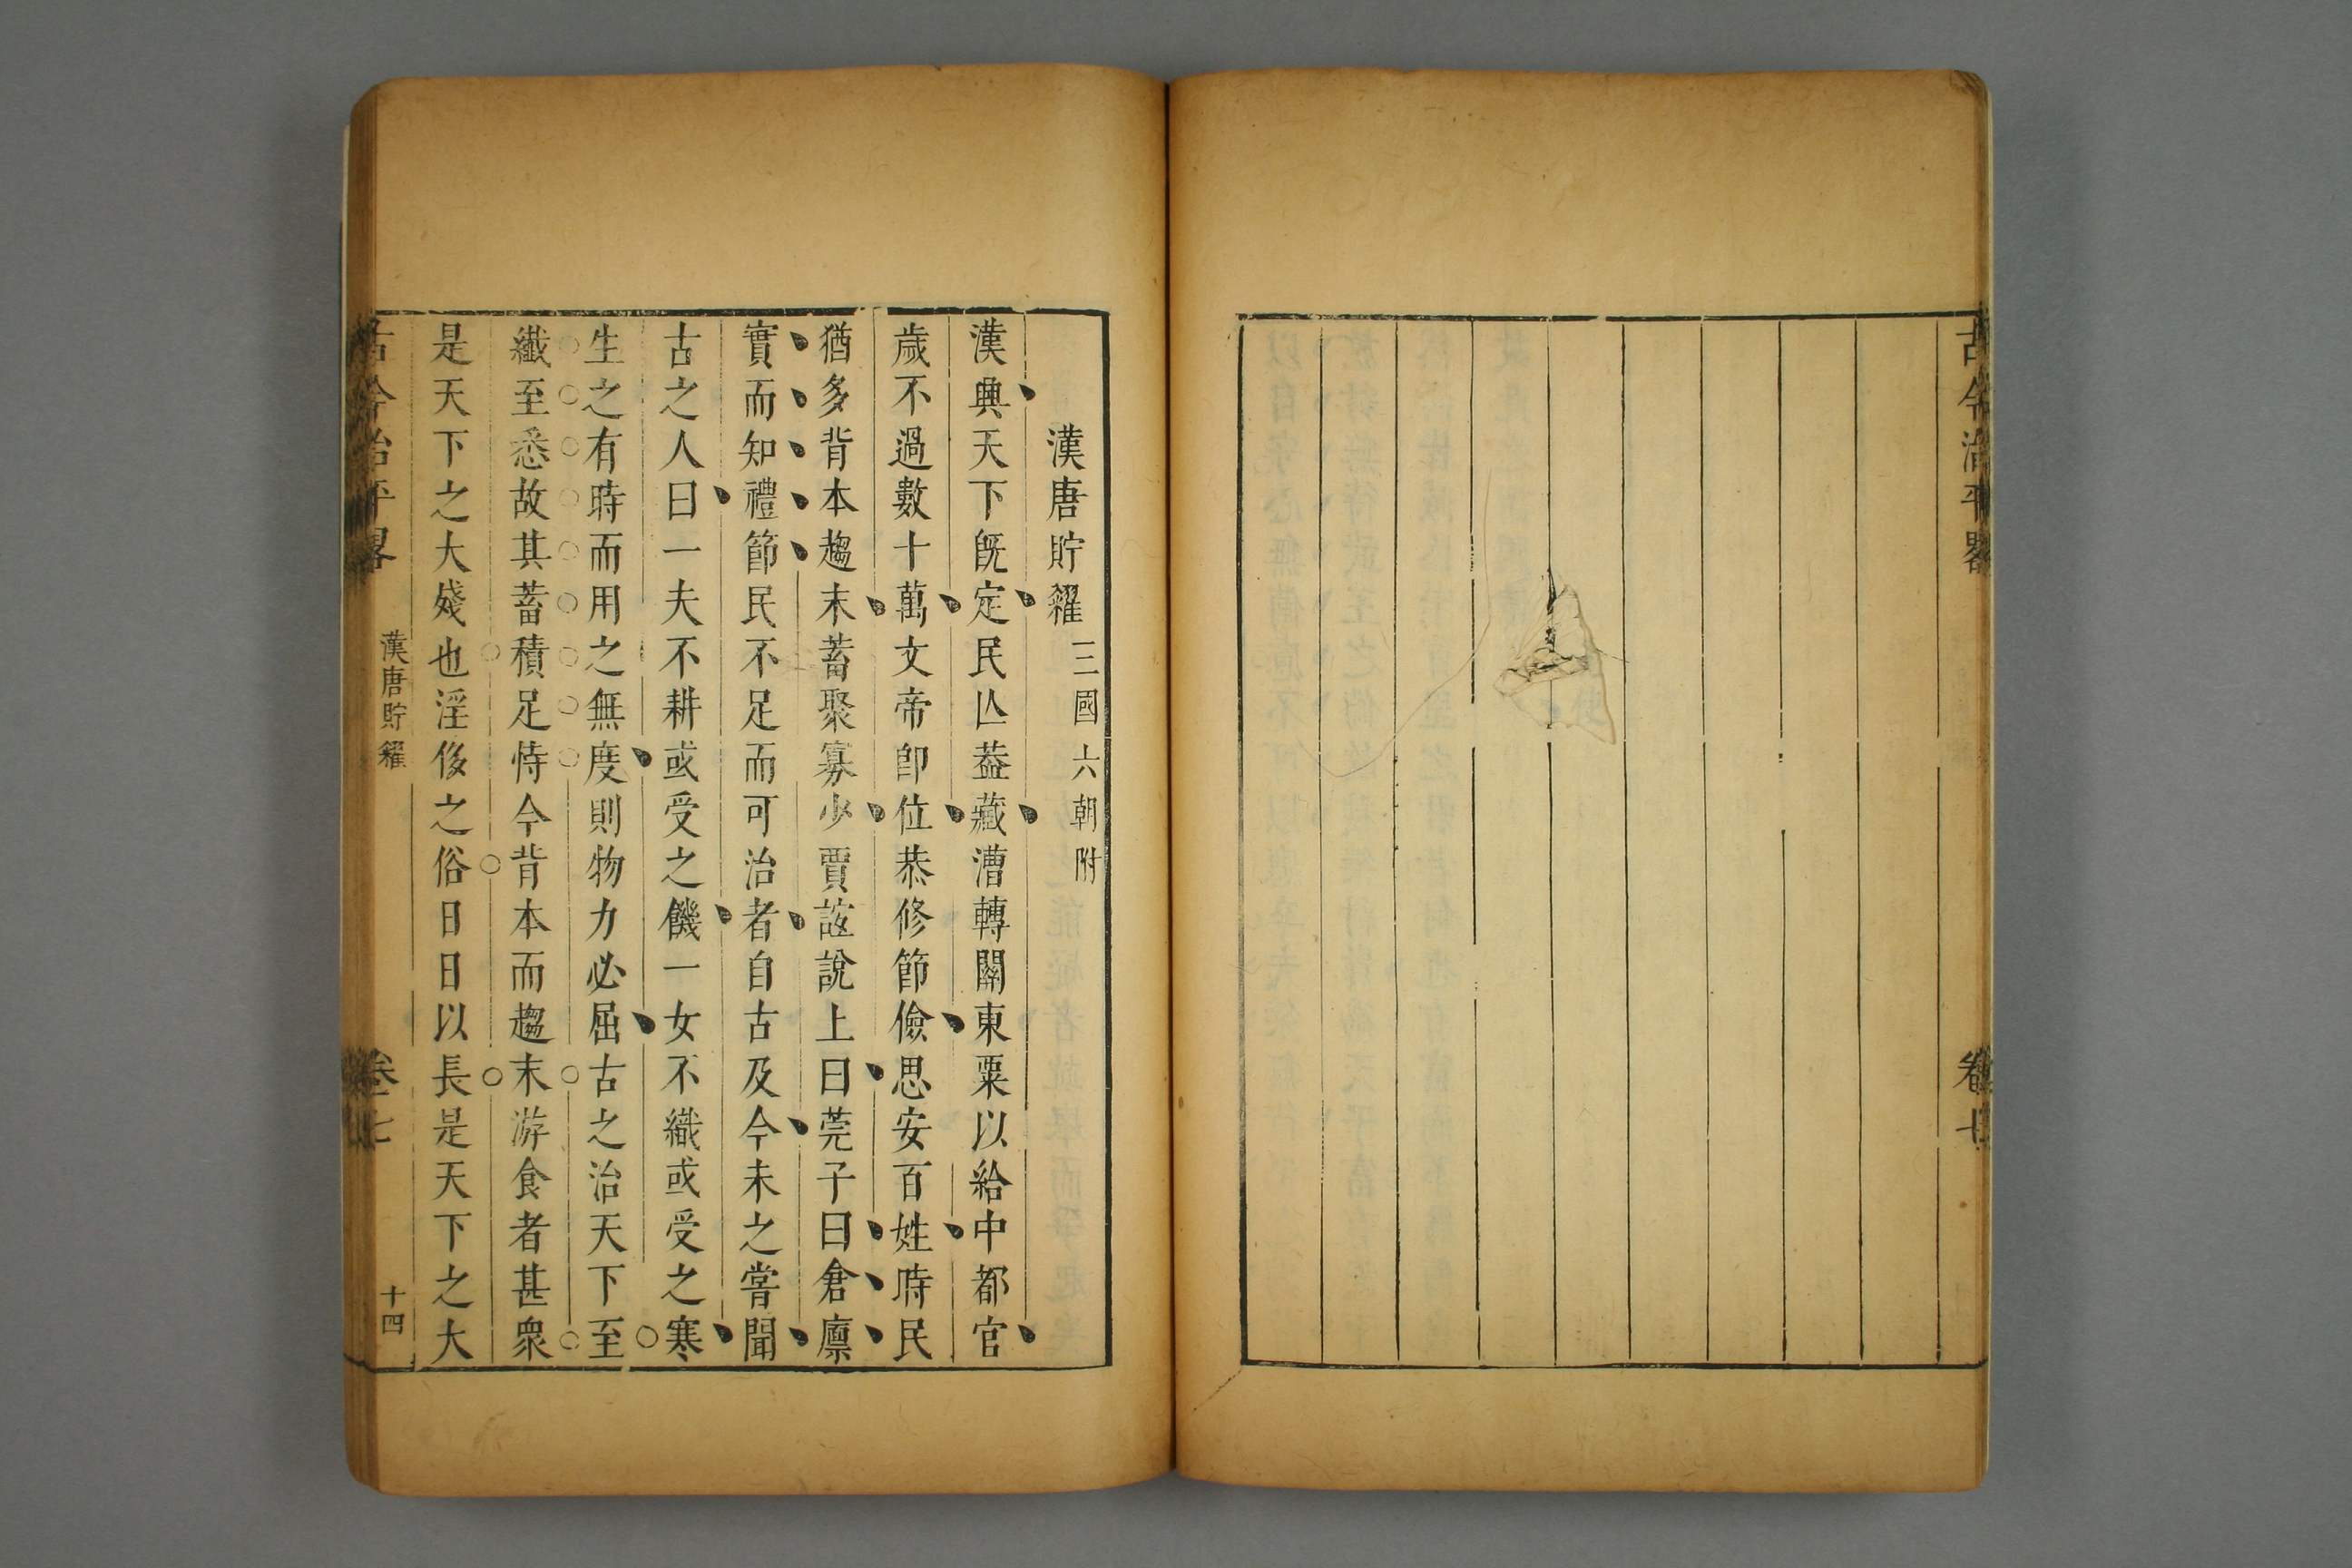 古今治平畧
卷七
漢唐貯糴三國六朝附
漢興天下旣定民亾葢藏漕轉關東粟以給中都官
歲不過數十萬文帝卽位恭修節儉思安百姓時民
猶多背本趨末蓄聚寡少賈誼說上曰莞子曰倉廩
實而知禮節民不足而可治者自古及今未之嘗聞
古之人曰一夫不耕或受之饑一女不織或受之寒
生之有時而用之無度則物力必屈古之治天下至
纖至悉故其蓄積足恃今背本而趨末游食者甚衆
是天下之大殘也淫侈之俗日日以長是天下之大
古今治平畧
漢唐貯糴
卷七
十四